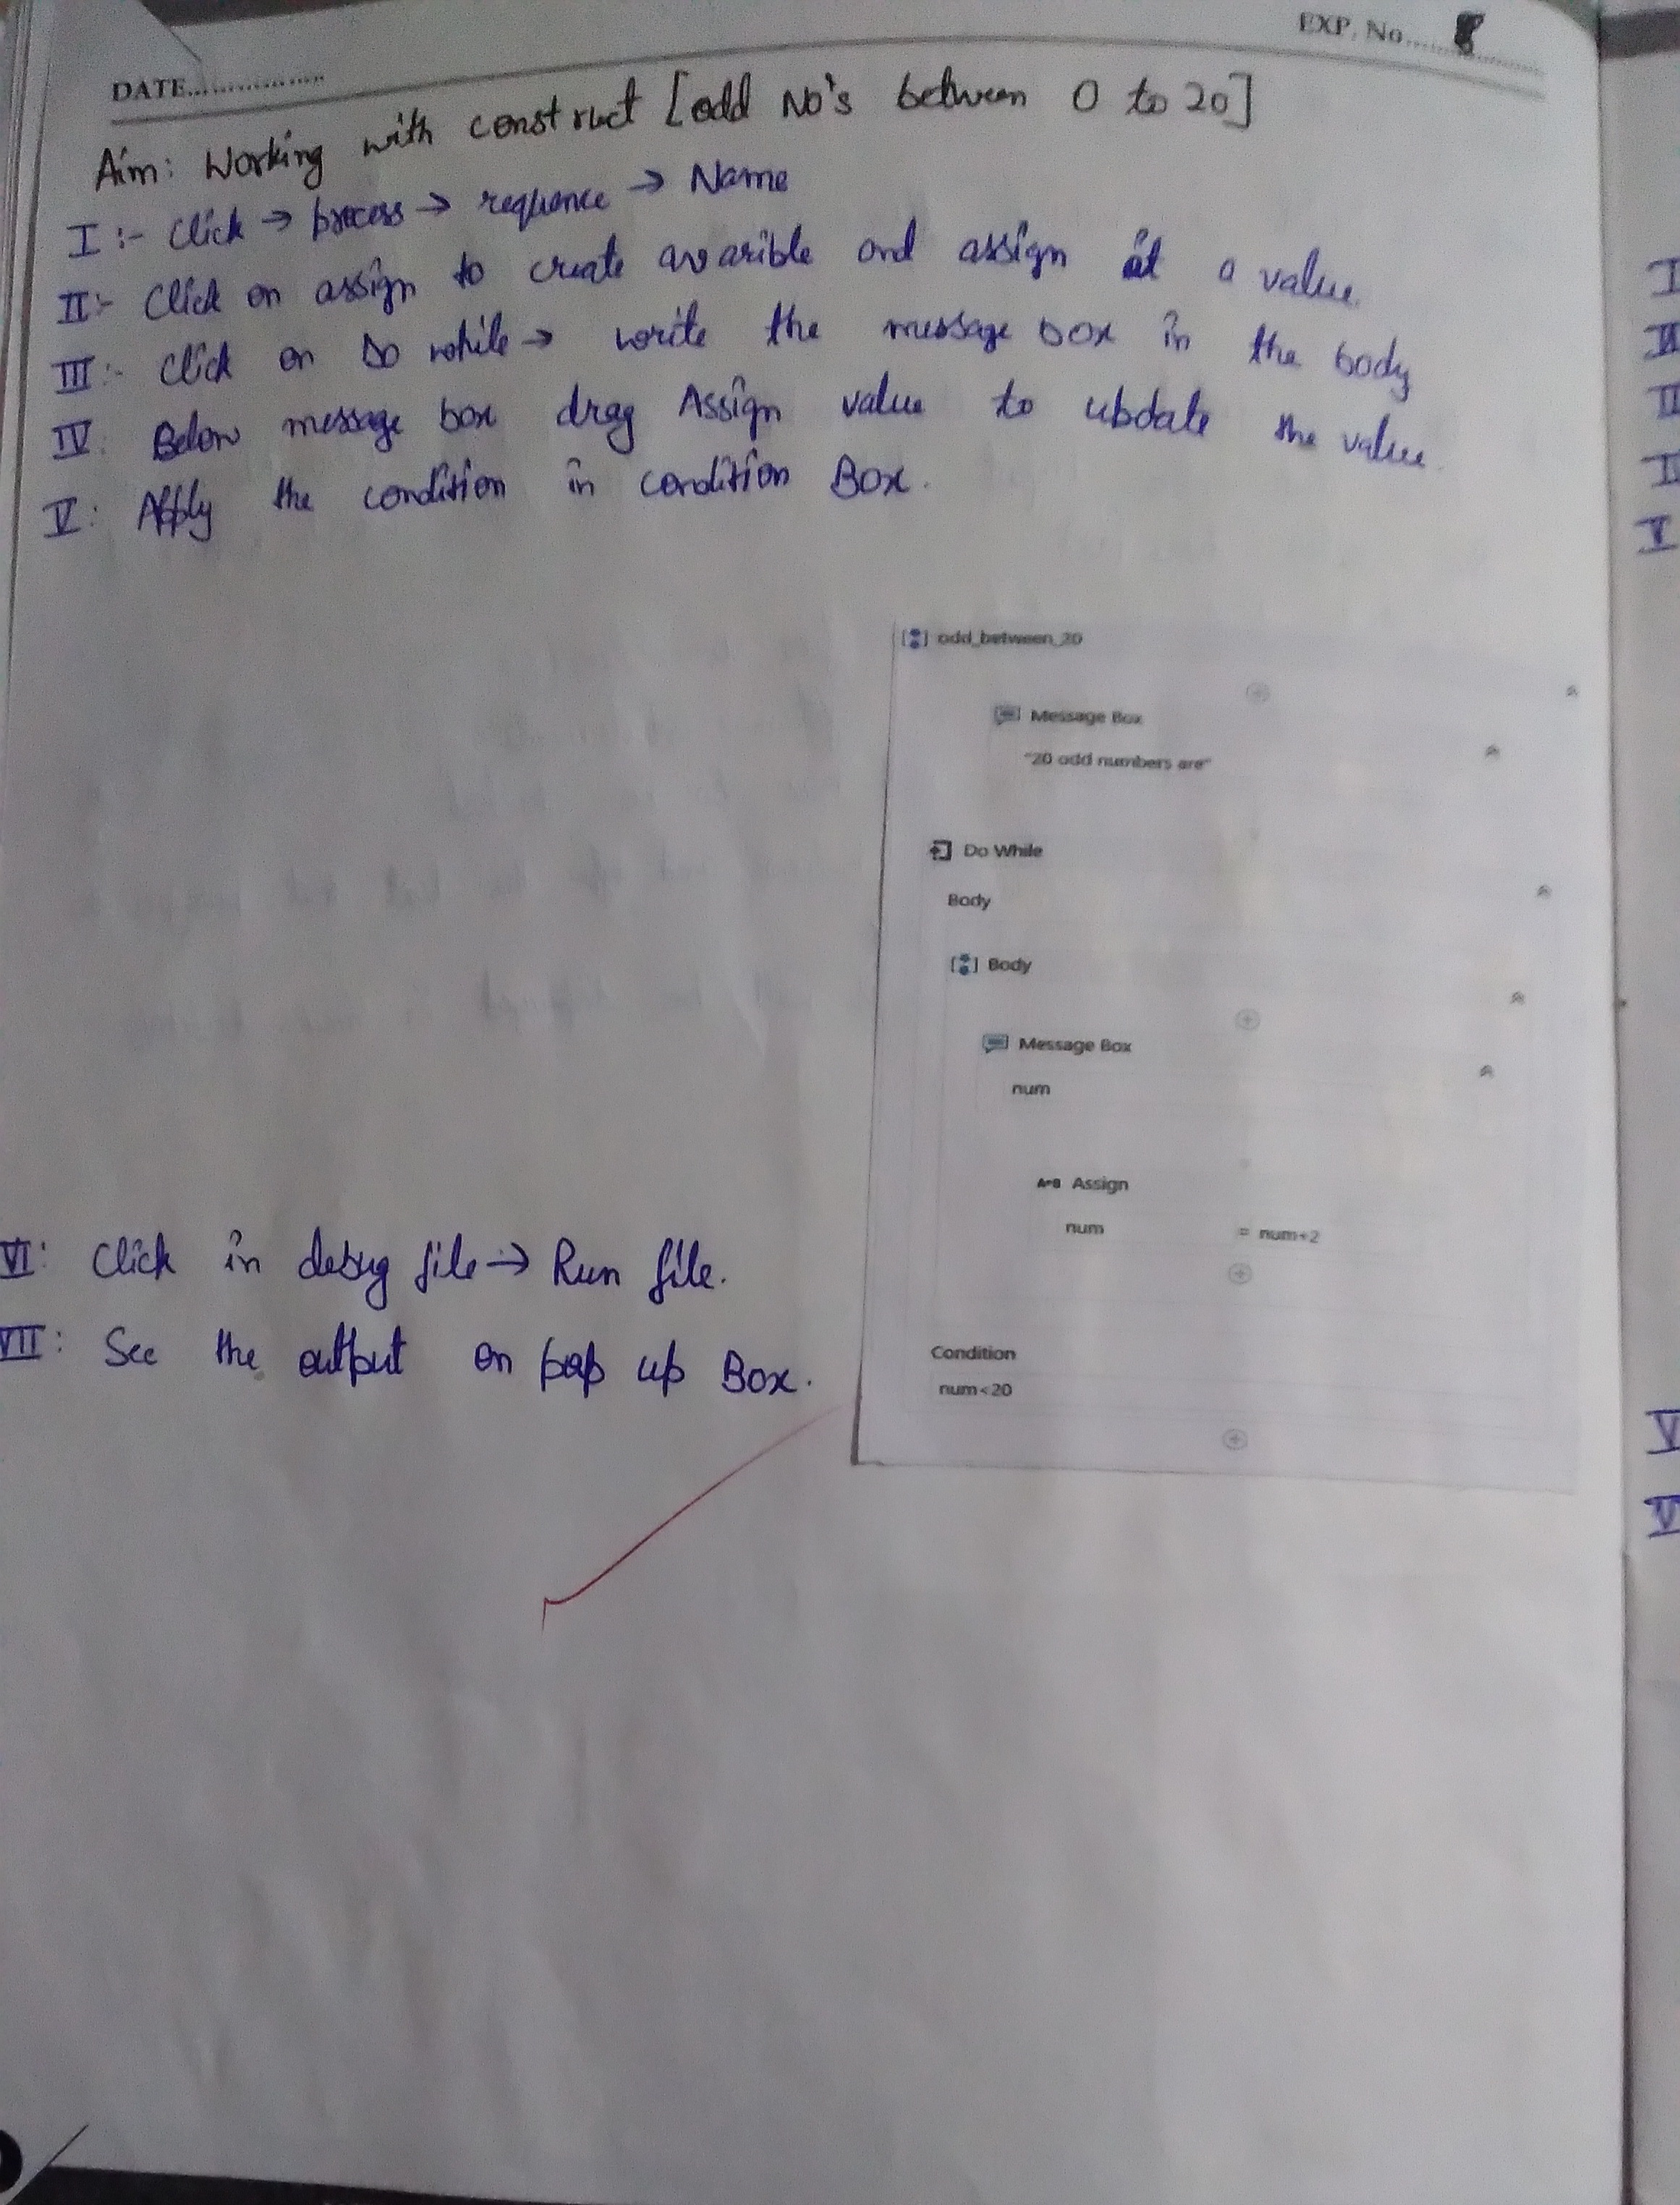 EXP. No.......8
DATE..................
Aim: Working with construct [odd No's between 0 to 20]
I :- Click → process → sequence → Name
II :- Click on assign to create avarible and assign it a value.
III :- Click on Do while → write the message box in the body
IV : Below message box drag Assign value to update the value.
V : Apply the condition in condition Box.
odd_between_20
Message Box
"20 odd numbers are"
Do While
Body
Body
Message Box
num
A=B Assign
num = num+2
Condition
num<20
VI : Click in debug file → Run file.
VII : See the output on pop up Box.
I
II
II
I
V
V
V